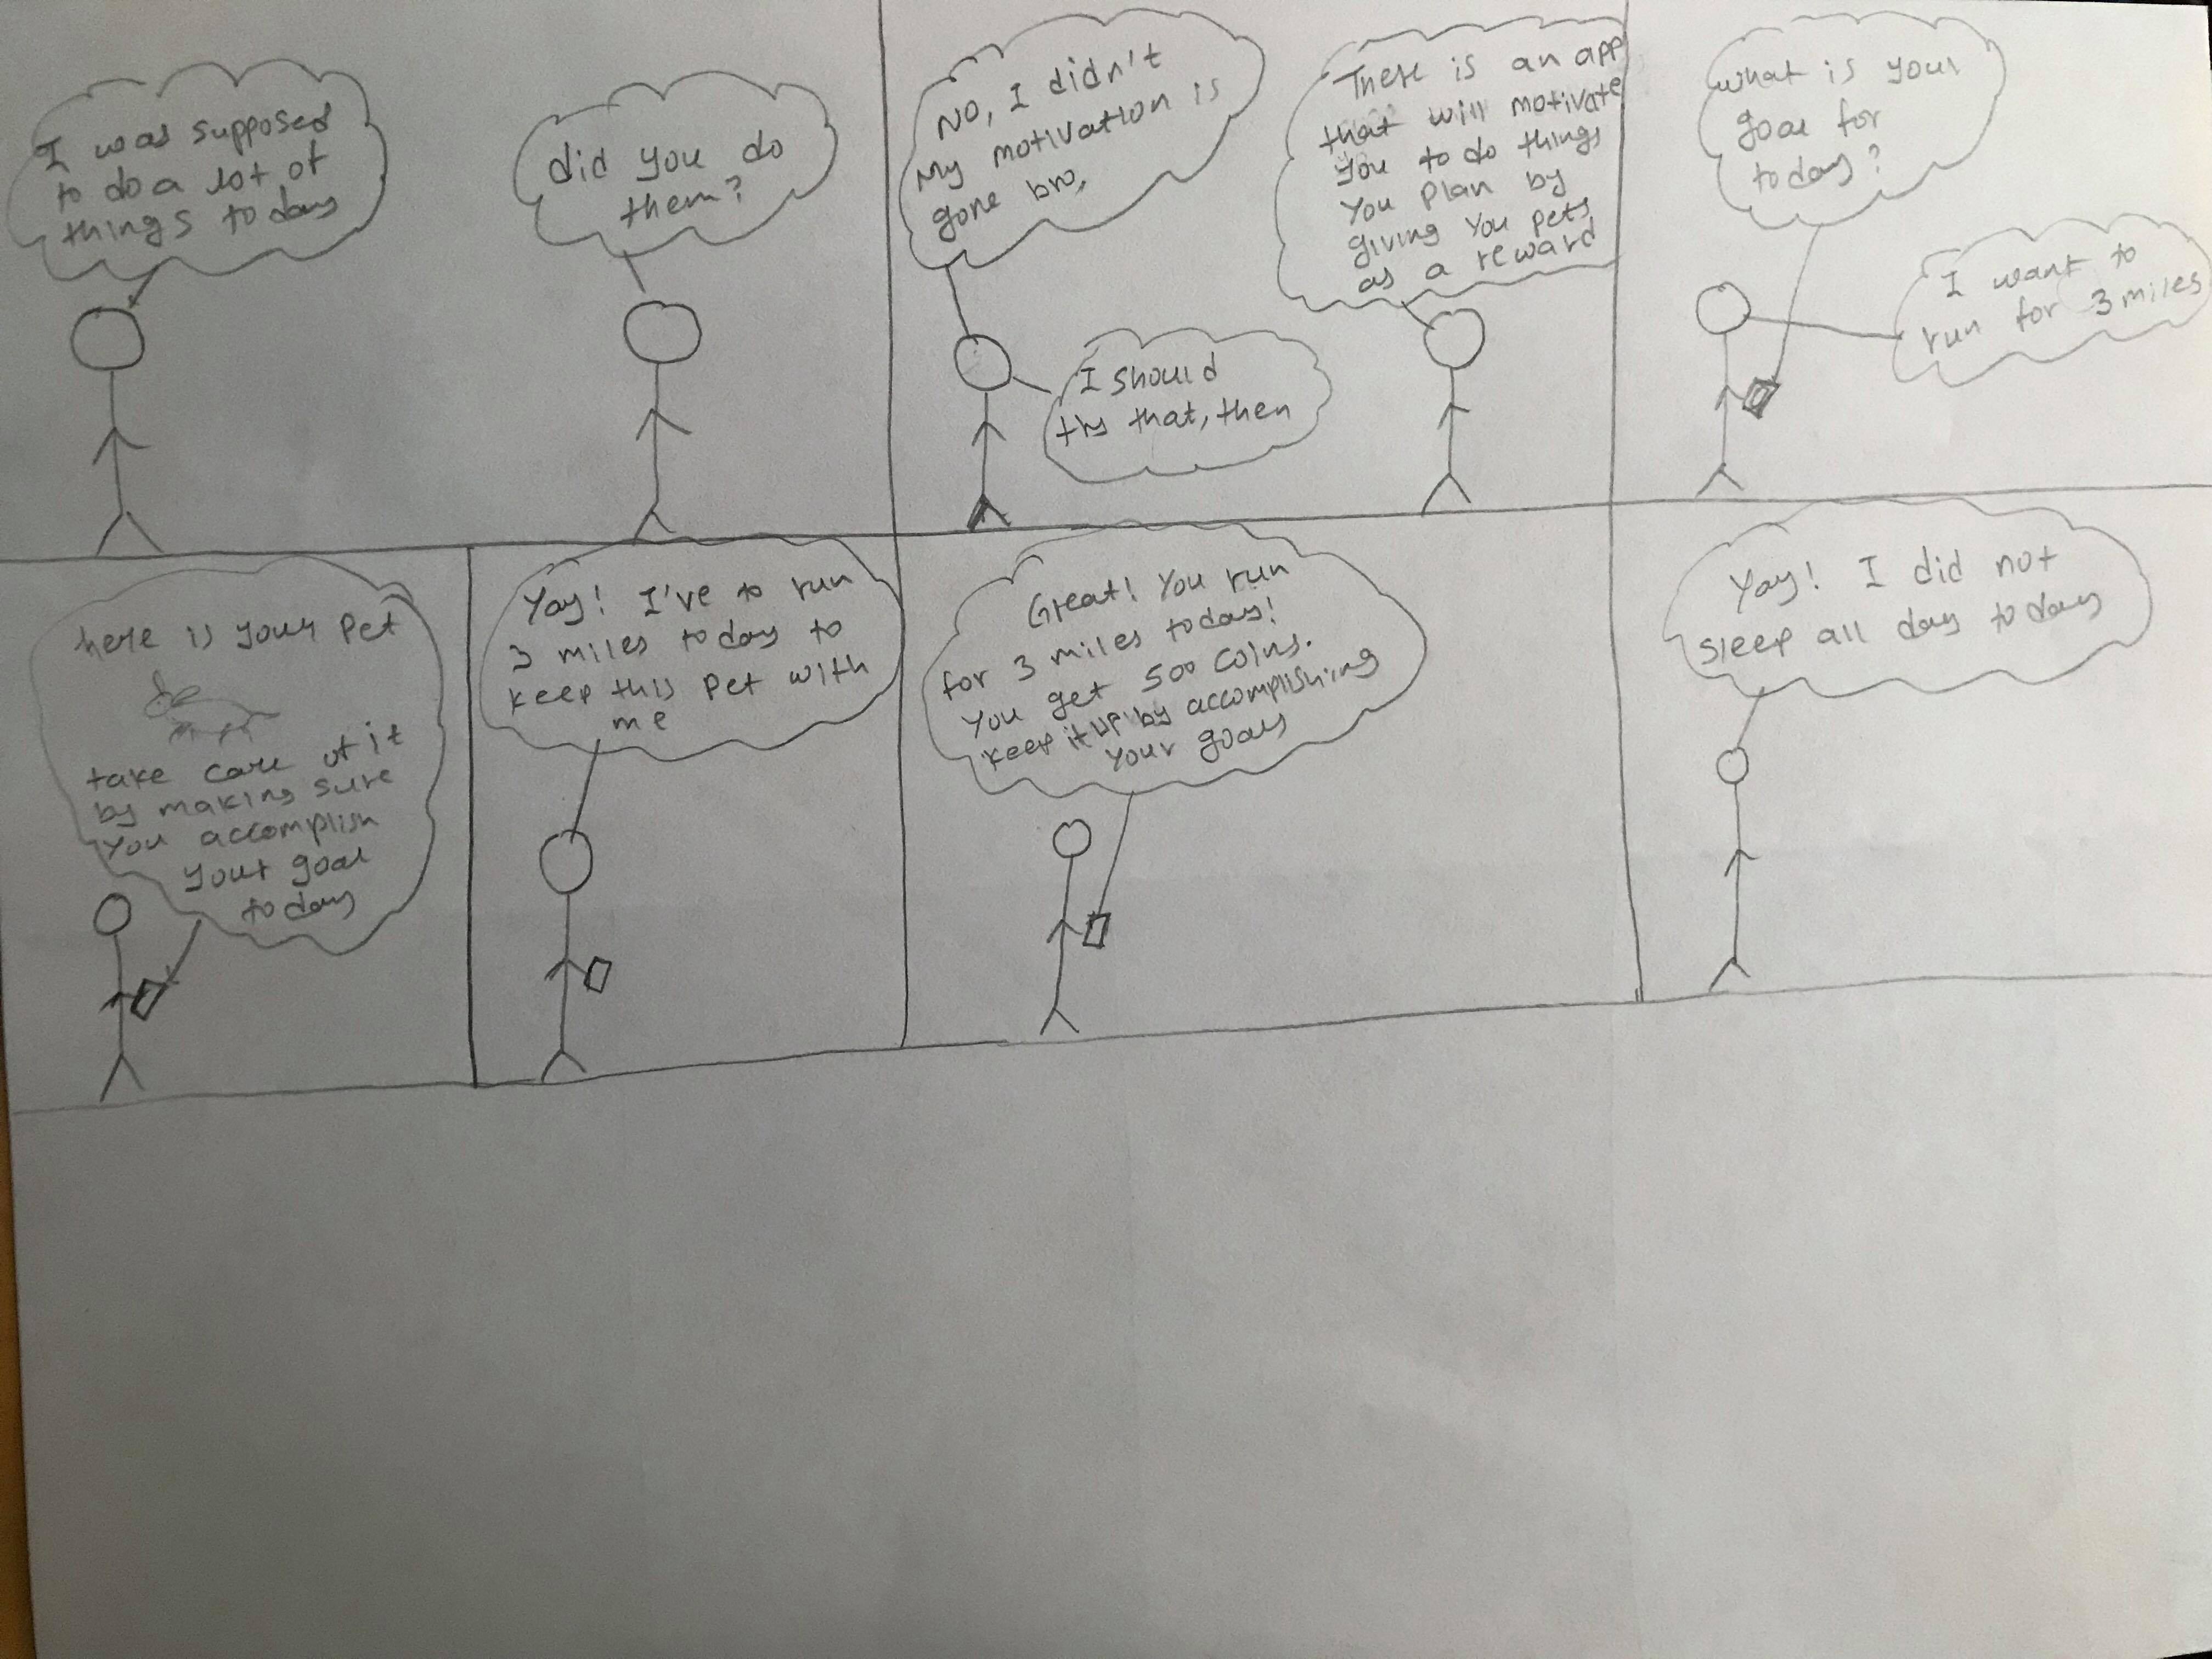 I was supposed
to do a lot of
things today
did you do
them?
No, I didn't
My motivation is
gone bro,
There is an app
that will motivate
you to do things
you plan by
giving you pets
as a reward
I should
try that, then
what is your
goal for
today?
I want to
run for 3 miles
here is your pet
take care of it
by making sure
you accomplish
your goal
today
Yay! I've to run
3 miles today to
keep this pet with
me
Great! You run
for 3 miles today!
You get 500 coins.
keep it up by accomplishing
your goals
Yay! I did not
sleep all day today